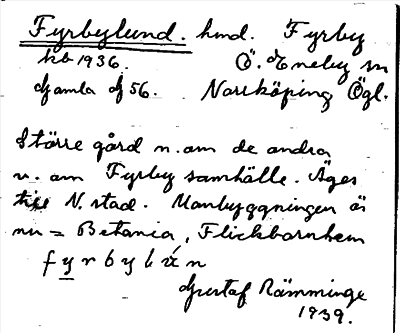 Fyrbylund. hmd. Fyrby
kb 1936. Ö. Eneby sn
Gamla Gj 56. Norrköping Ögl.
Större gård n. om de andra
v. om Fyrby samhälle. Äges
N. stad. Manbyggningen är
nu = Betania, Flickbarnhem
fyrbylún
Gustaf Rämminge
1939.